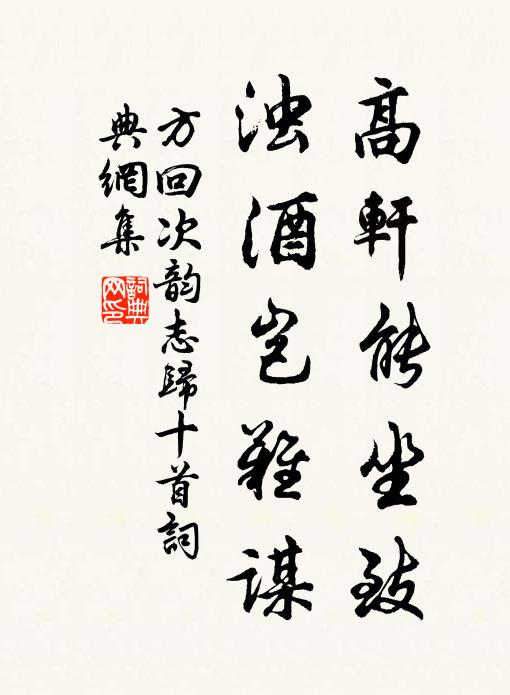 高軒能坐致
浊酒岂難謀
方回次韵志歸十首詞
典網集
詞典
网印